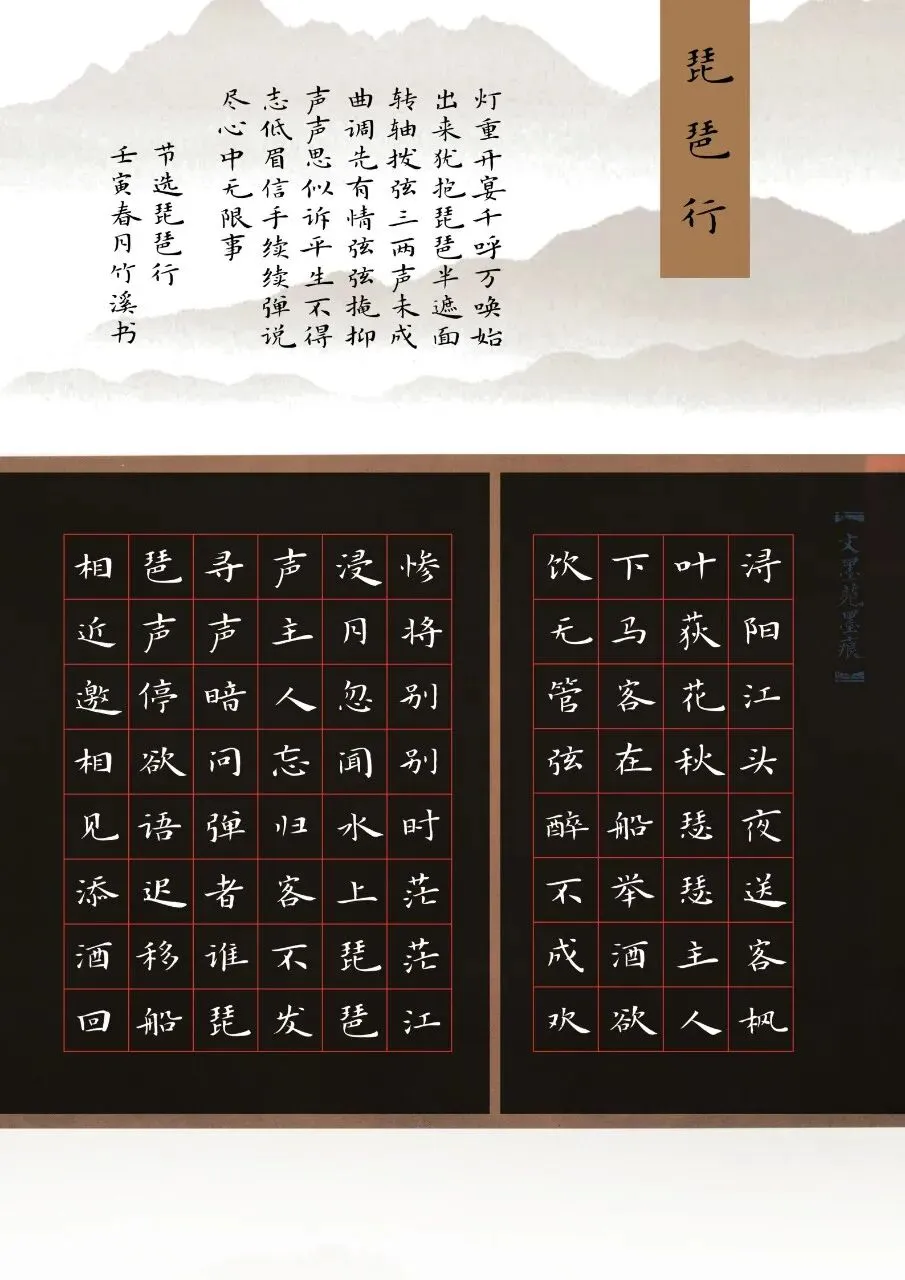 琵琶行
【文墨苑墨痕】
浔阳江头夜送客枫
叶荻花秋瑟瑟主人
下马客在船举酒欲
饮无管弦醉不成欢
惨将别别时茫茫江
浸月忽闻水上琵琶
声主人忘归客不发
寻声暗问弹者谁琵
琶声停欲语迟移船
相近邀相见添酒回
灯重开宴千呼万唤始
出来犹抱琵琶半遮面
转轴拨弦三两声未成
曲调先有情弦弦掩抑
声声思似诉平生不得
志低眉信手续续弹说
尽心中无限事
节选琵琶行
壬寅春月竹溪书